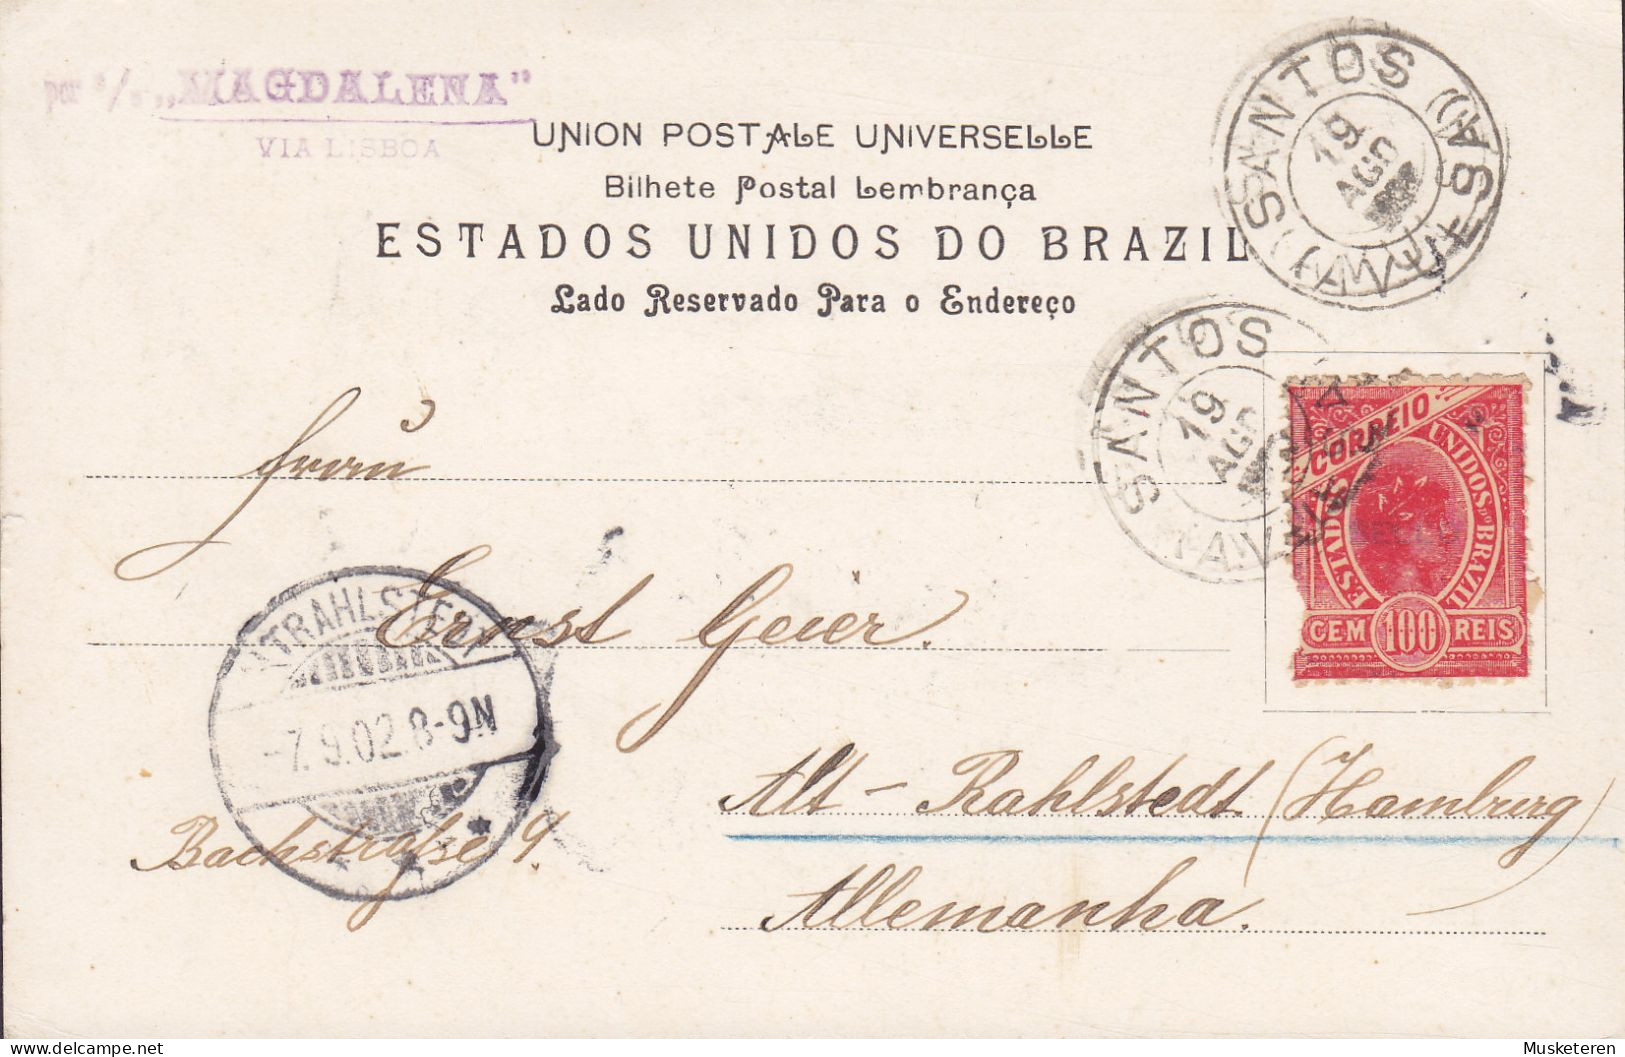 por s/s „MAGDALENA"
VIA LISBOA
UNION POSTALE UNIVERSELLE
Bilhete Postal Lembrança
ESTADOS UNIDOS DO BRAZIL
Lado Reservado Para o Endereço
SANTOS
19
AGO
SANTOS
19
AGO
CORREIO
ESTADOS UNIDOS DO BRAZIL
CEM 100 REIS
Frau
Ernst Geier.
Alt-Rahlstedt (Hamburg)
Bachstraße 9.
Allemanha.
-7.9.02.8-9N
Musketeren